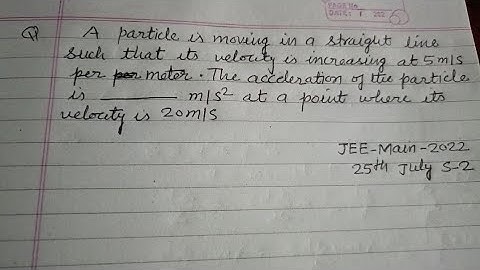 PAGE No.
DATE:
Q A particle is moving in a straight line
such that its velocity is increasing at 5 m/s
per per meter. The acceleration of the particle
is ________ m/s² at a point where its
velocity is 20 m/s
JEE-Main-2022
25th July S-2